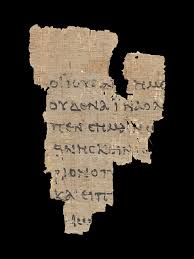 ΟΙ ΙΟΥΔΑΙ ΗΜΕ
ΟΥΔΕΝΑ ΙΝΑ Ο
ΠΕΝ ϹΗΜΑΙΝ
ΘΝΗϹΚΕΙΝ
ΡΙΟΝ Ο Π
ΚΑΙ ΕΙΠ